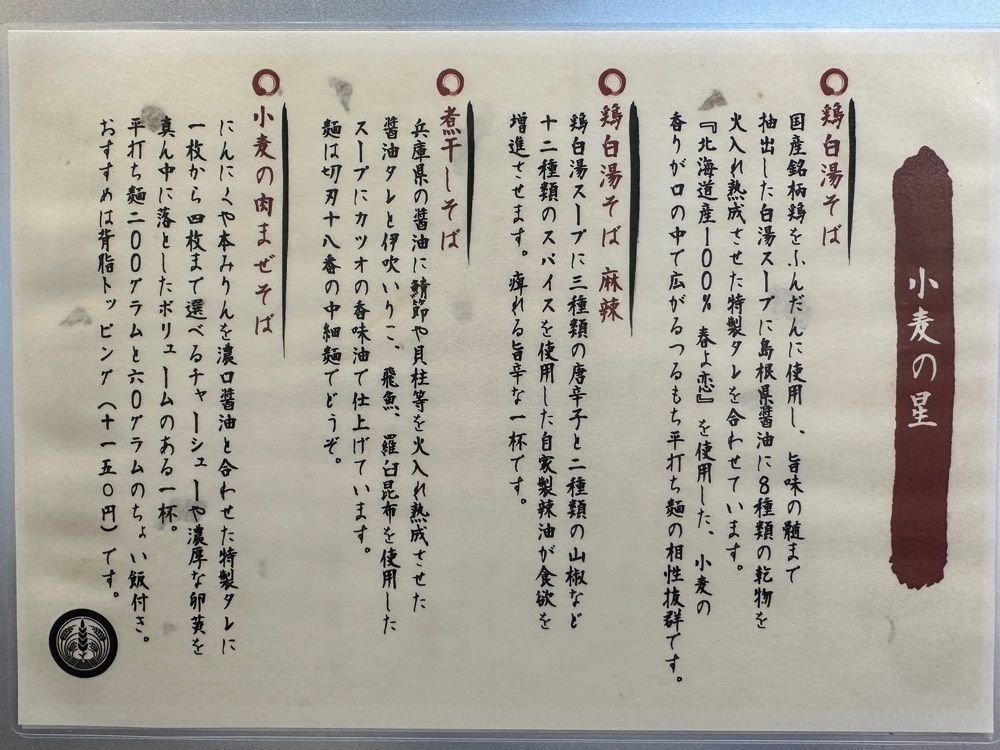 小麦の星
鶏白湯そば
国産銘柄鶏をふんだんに使用し、旨味の髄まで
抽出した白湯スープに島根県醤油に8種類の乾物を
火入れ熟成させた特製タレを合わせています。
『北海道産100% 春よ恋』を使用した、小麦の
香りが口の中で広がるつるもち平打ち麺の相性抜群です。
鶏白湯そば 麻辣
鶏白湯スープに三種類の唐辛子と二種類の山椒など
十二種類のスパイスを使用した自家製辣油が食欲を
増進させます。痺れる旨辛な一杯です。
煮干しそば
兵庫県の醤油に鯖節や貝柱等を火入れ熟成させた
醤油タレと伊吹いりこ、飛魚、羅臼昆布を使用した
スープにカツオの香味油で仕上げています。
麺は切刃十八番の中細麺でどうぞ。
小麦の肉まぜそば
にんにくや本みりんを濃口醤油と合わせた特製タレに
一枚から四枚まで選べるチャーシューや濃厚な卵黄を
真ん中に落としたボリュームのある一杯。
平打ち麺二〇〇グラムと六〇グラムのちょい飯付き。
おすすめは背脂トッピング(+一五〇円)です。